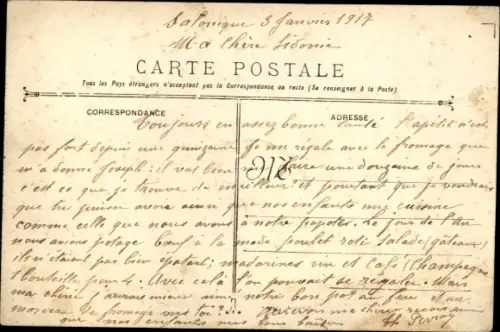 Salonique 3 Janvier 1917
Ma Chère Sidonie
CARTE POSTALE
Tous les Pays étrangers n'acceptent pas la Correspondance au recto (Se renseigner à la Poste)
CORRESPONDANCE
ADRESSE
Toujours en assez bonne santé l'apétit n'est
pas fort depuis une quinzaine Je me régale avec le fromage que
m'a donné Joseph; il vas bien faire une douzaine de jours
c'est ce que je trouve de meilleur et pourtant que je voudrais
que tu puisse avoir ainsi que nos enfants une cuisine
comme celle que nous avons à notre popotte. Le jour de l'An
nous avons potage bœuf à la mode poulet roti Salade (gâteaux)
ils n'étaient pas bien épatant; mandarines vin et Café (Champagne
1 bouteille pour 4. Avec cela l'on pouvait se régaler. Mais
ma chère j'aurais mieux aimé notre bon pot au feu et un
morceau de fromage vers toi
que nos enfants mes bons baisers